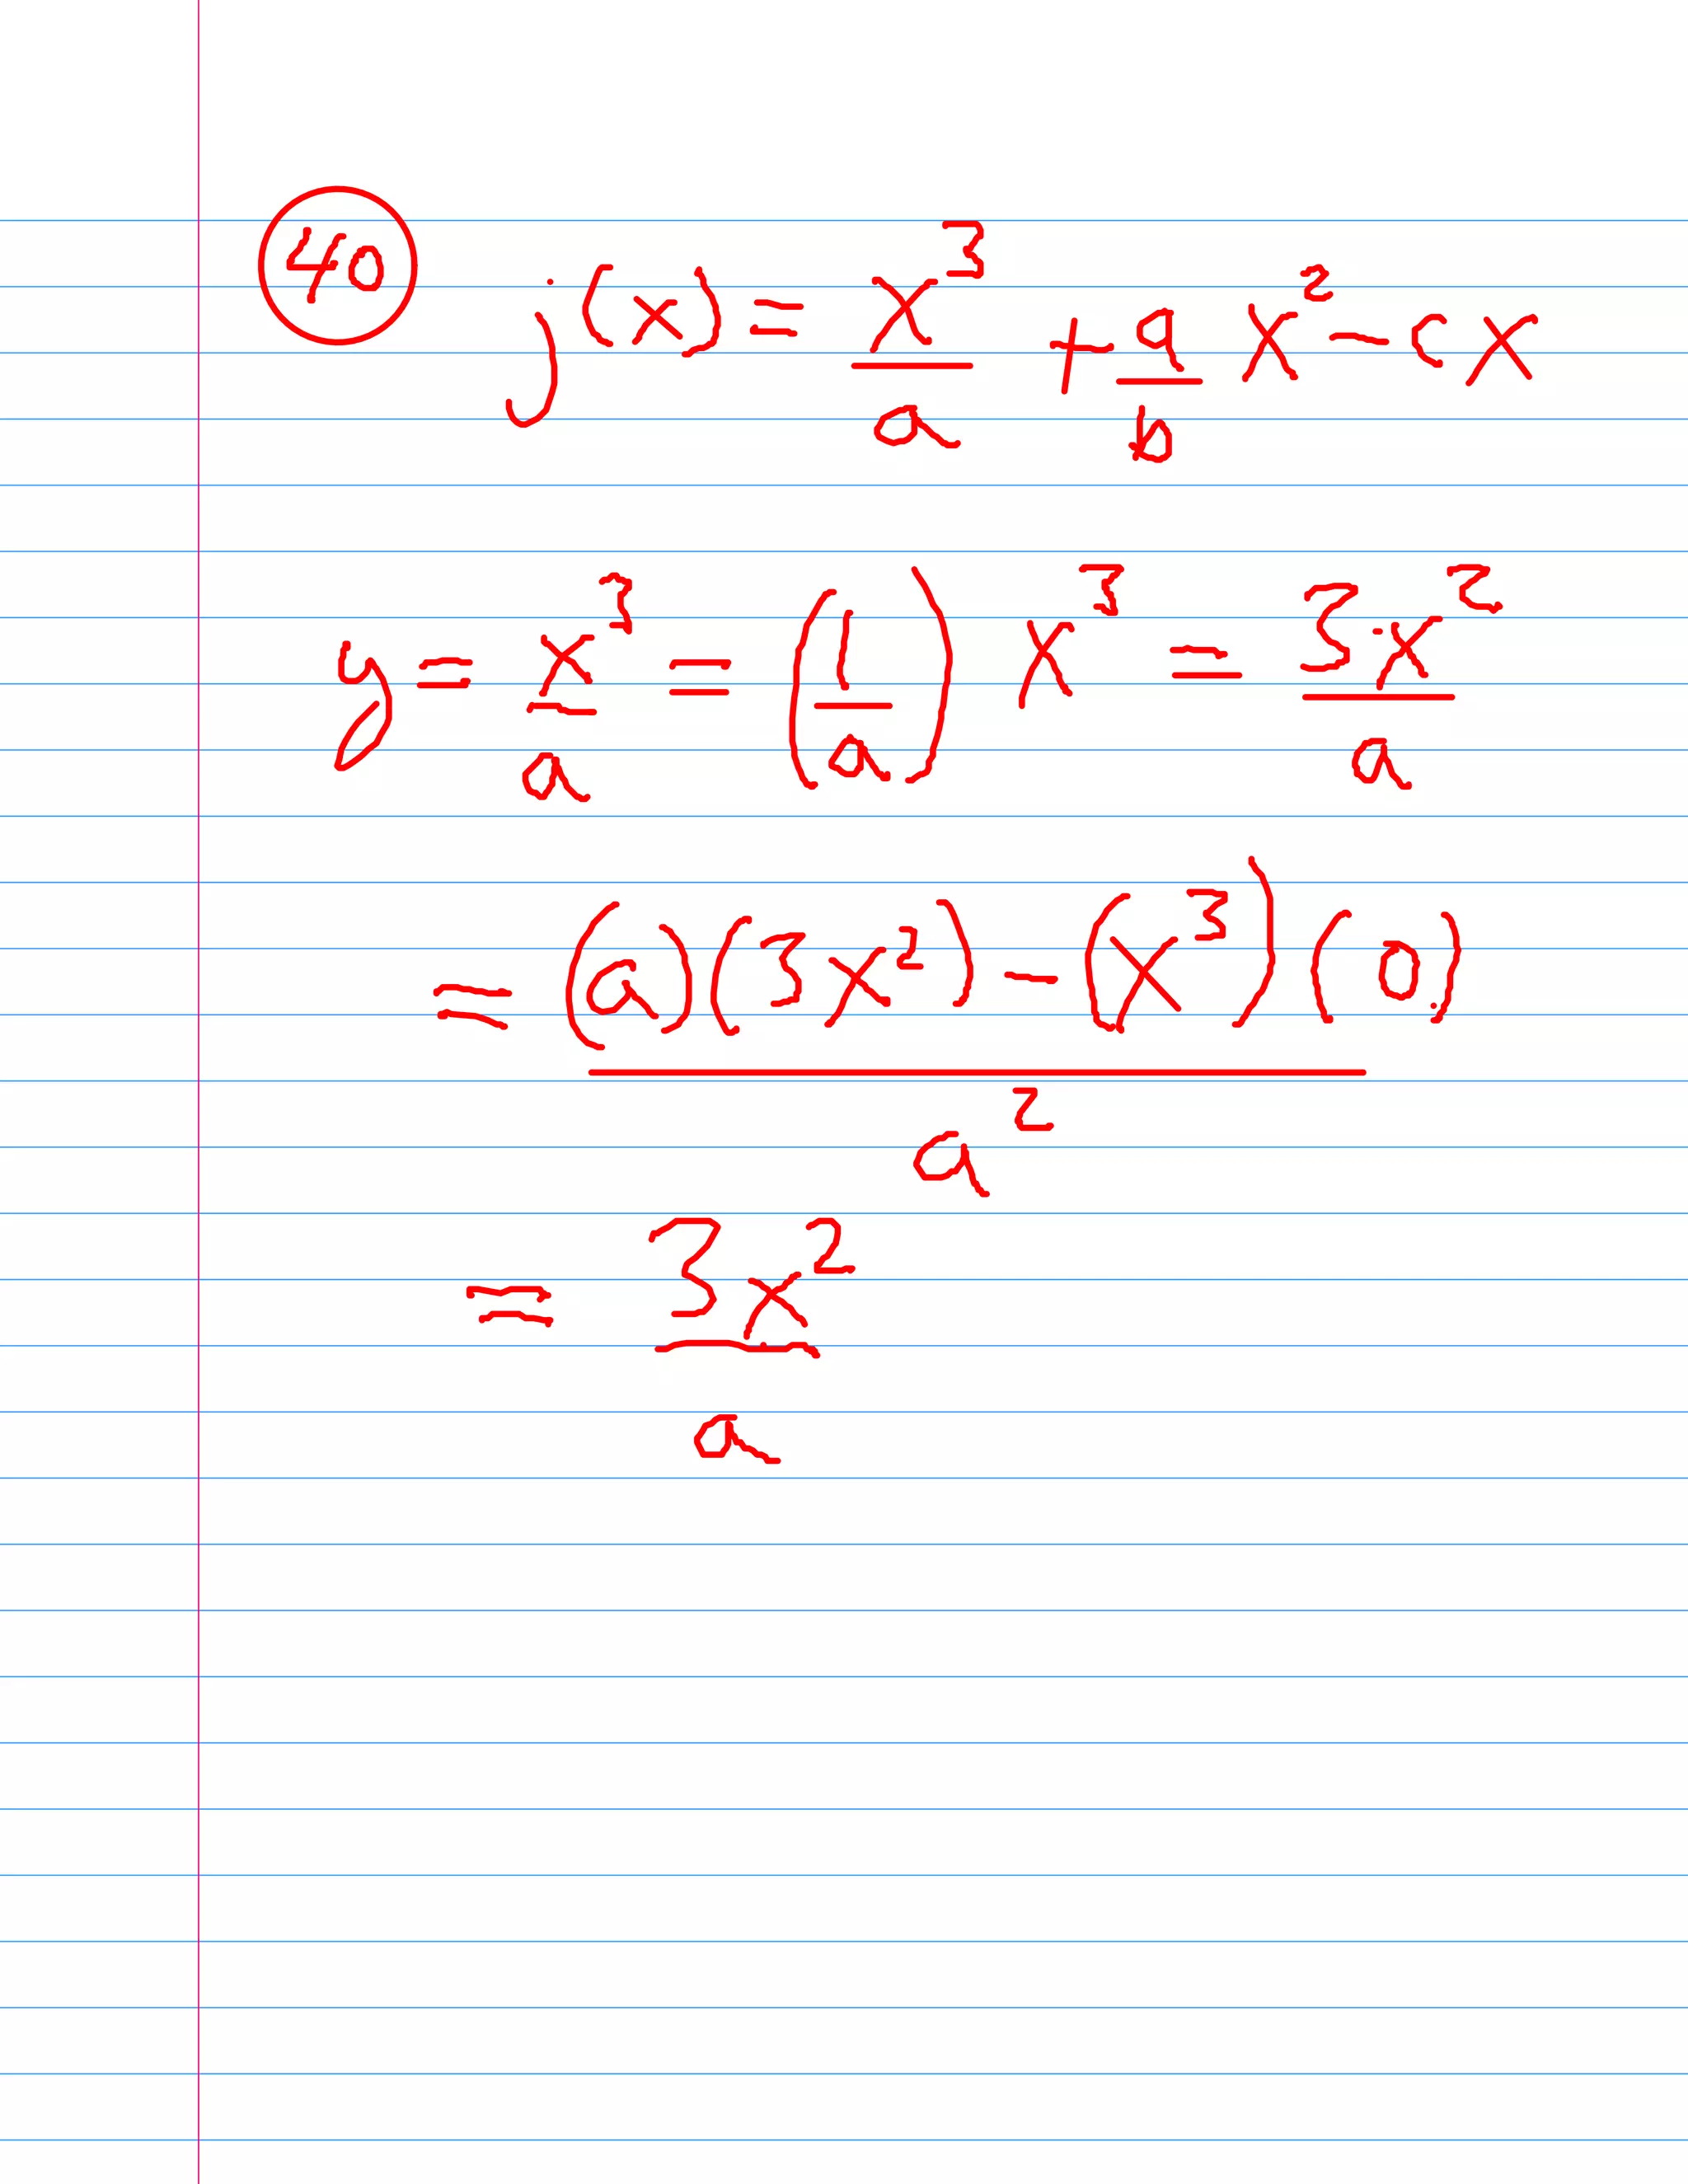 40 j(x) = x³/a + a/b x² - cx
y = x³/a = (1/a) x³ = 3x²/a
= (a)(3x²) - (x³)(0) / a²
= 3x²/a